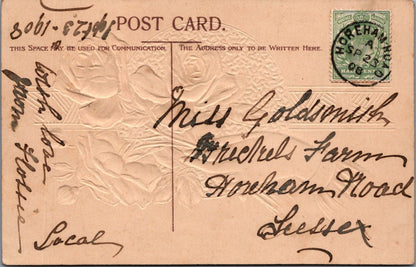 POST CARD.
THIS SPACE MAY BE USED FOR COMMUNICATION.
THE ADDRESS ONLY TO BE WRITTEN HERE.
HALFPENNY
HOREHAM ROAD
A
SP 23
08
23 - 1908
with love
from Flossie
Local
Miss Goldsmith
Farm
Horeham Road
Sussex